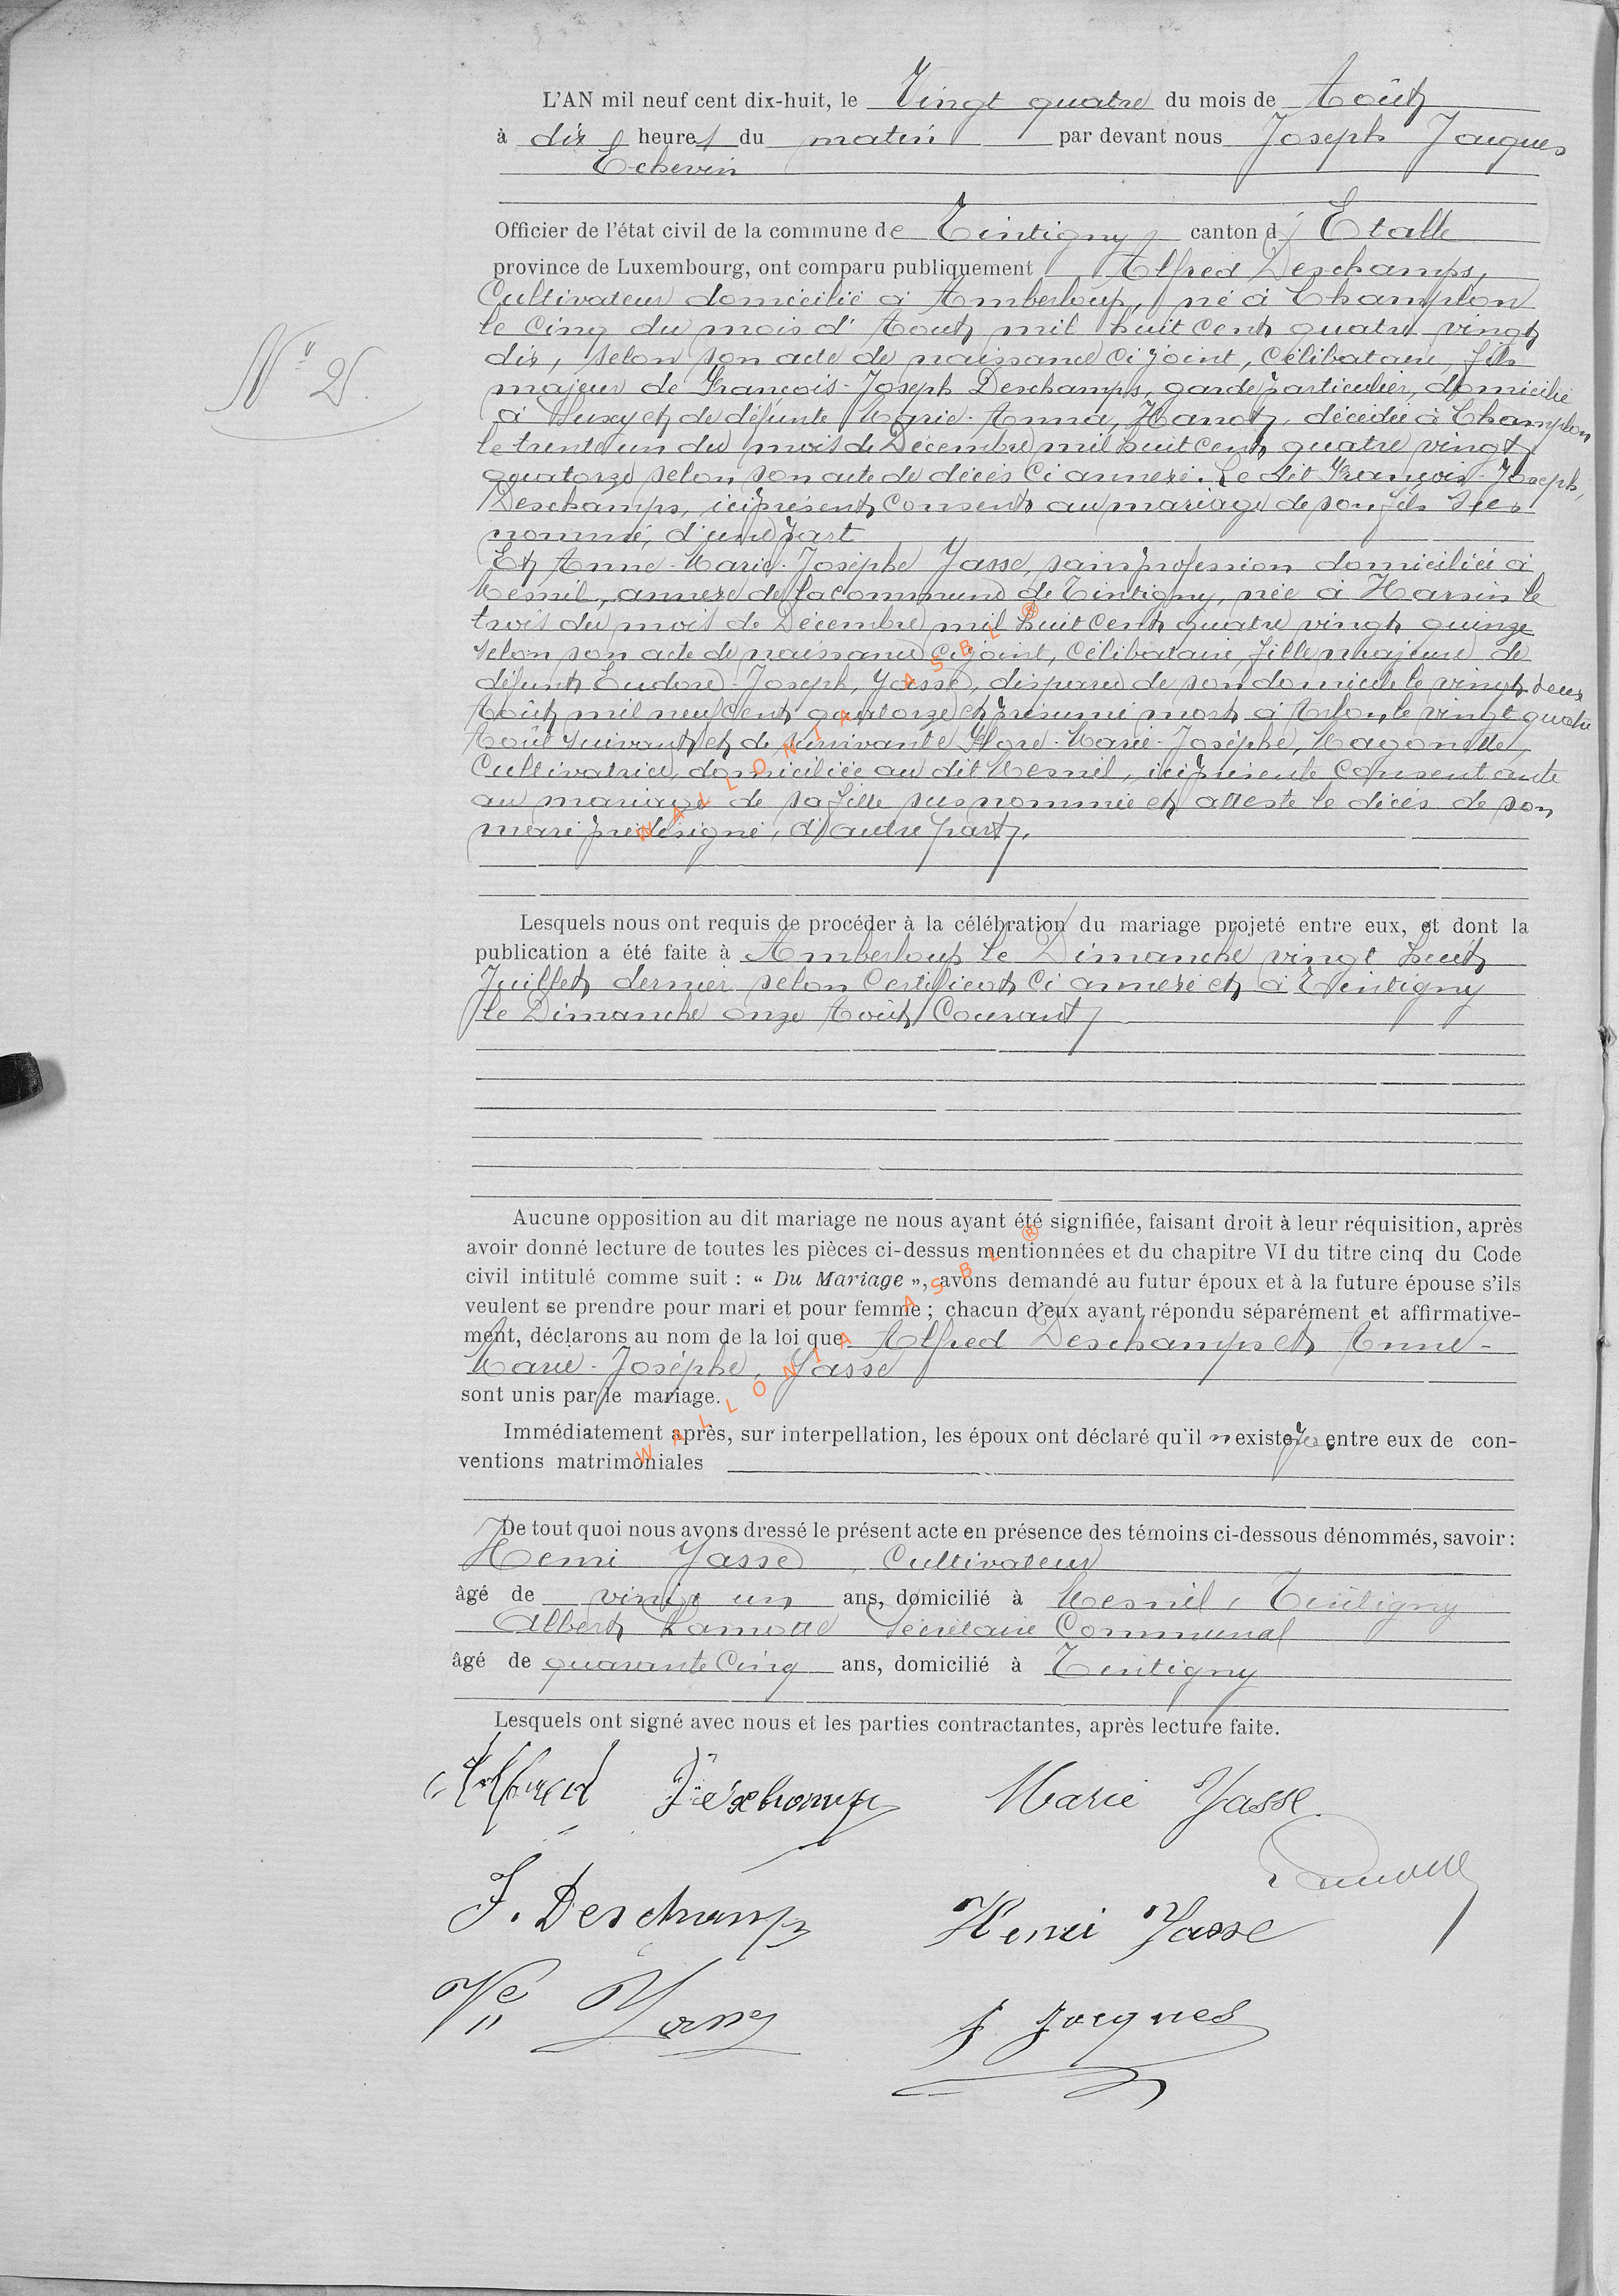 L'AN mil neuf cent dix-huit, le Vingt quatre du mois de Août
à dix heures du matin par devant nous Joseph Jacques
Echevin
Officier de l'état civil de la commune de Tintigny canton d' Etalle
province de Luxembourg, ont comparu publiquement Alfred Deschamps,
Cultivateur domicilié à Amberloup, né à Champlon
le cinq du mois d'Août mil huit cent quatre vingt
dix, selon son acte de naissance ci joint, célibataire, fils
majeur de François-Joseph Deschamps, garde particulier, domicilié
à Suxy et de défunte Marie-Anna, Hanot, décédée à Champlon
le trente un du mois de Décembre mil huit cent quatre vingt
quatorze selon son acte de décès ci annexé. Le dit François-Joseph,
Deschamps, ici présent consent au mariage de son fils sus
nommé, d'une part
Et Anne-Marie-Josèphe Yasse, sans profession domiciliée à
Mesnil, annexe de la commune de Tintigny, née à Harsin le
trois du mois de Décembre mil huit cent quatre vingt quinze
selon son acte de naissance ci joint, célibataire, fille majeure de
défunt Eudore-Joseph, Yasse, disparu de son domicile le vingt deux
Août mil neuf cent quatorze et présumé mort à Arlon, le vingt quatre
Août suivant et de survivante Flore-Marie-Josèphe, Magonette,
Cultivatrice, domiciliée au dit Mesnil, ici présente consentante
au mariage de sa fille sus nommée et atteste le décès de son
mari prédésigné, d'autre part.
Lesquels nous ont requis de procéder à la célébration du mariage projeté entre eux, et dont la
publication a été faite à Amberloup le Dimanche vingt huit
Juillet dernier selon certificat ci annexé et à Tintigny
le Dimanche onze Août Courant
Aucune opposition au dit mariage ne nous ayant été signifiée, faisant droit à leur réquisition, après
avoir donné lecture de toutes les pièces ci-dessus mentionnées et du chapitre VI du titre cinq du Code
civil intitulé comme suit : « Du Mariage », avons demandé au futur époux et à la future épouse s'ils
veulent se prendre pour mari et pour femme ; chacun d'eux ayant répondu séparément et affirmative-
ment, déclarons au nom de la loi que Alfred Deschamps et Anne-
Marie-Josèphe, Yasse
sont unis par le mariage.
Immédiatement après, sur interpellation, les époux ont déclaré qu'il n'existe pas entre eux de con-
ventions matrimoniales
De tout quoi nous avons dressé le présent acte en présence des témoins ci-dessous dénommés, savoir :
Henri Yasse, Cultivateur
âgé de vingt un ans, domicilié à Mesnil, Tintigny
Albert Lamotte Secrétaire Communal
âgé de quarante cinq ans, domicilié à Tintigny
Lesquels ont signé avec nous et les parties contractantes, après lecture faite.
Alfred Deschamps Marie Yasse
Lamotte
F. Deschamps Henri Yasse
Ve Yasse J Jacques
N° 2.
WALLONIA ASBL ®
WALLONIA ASBL ®